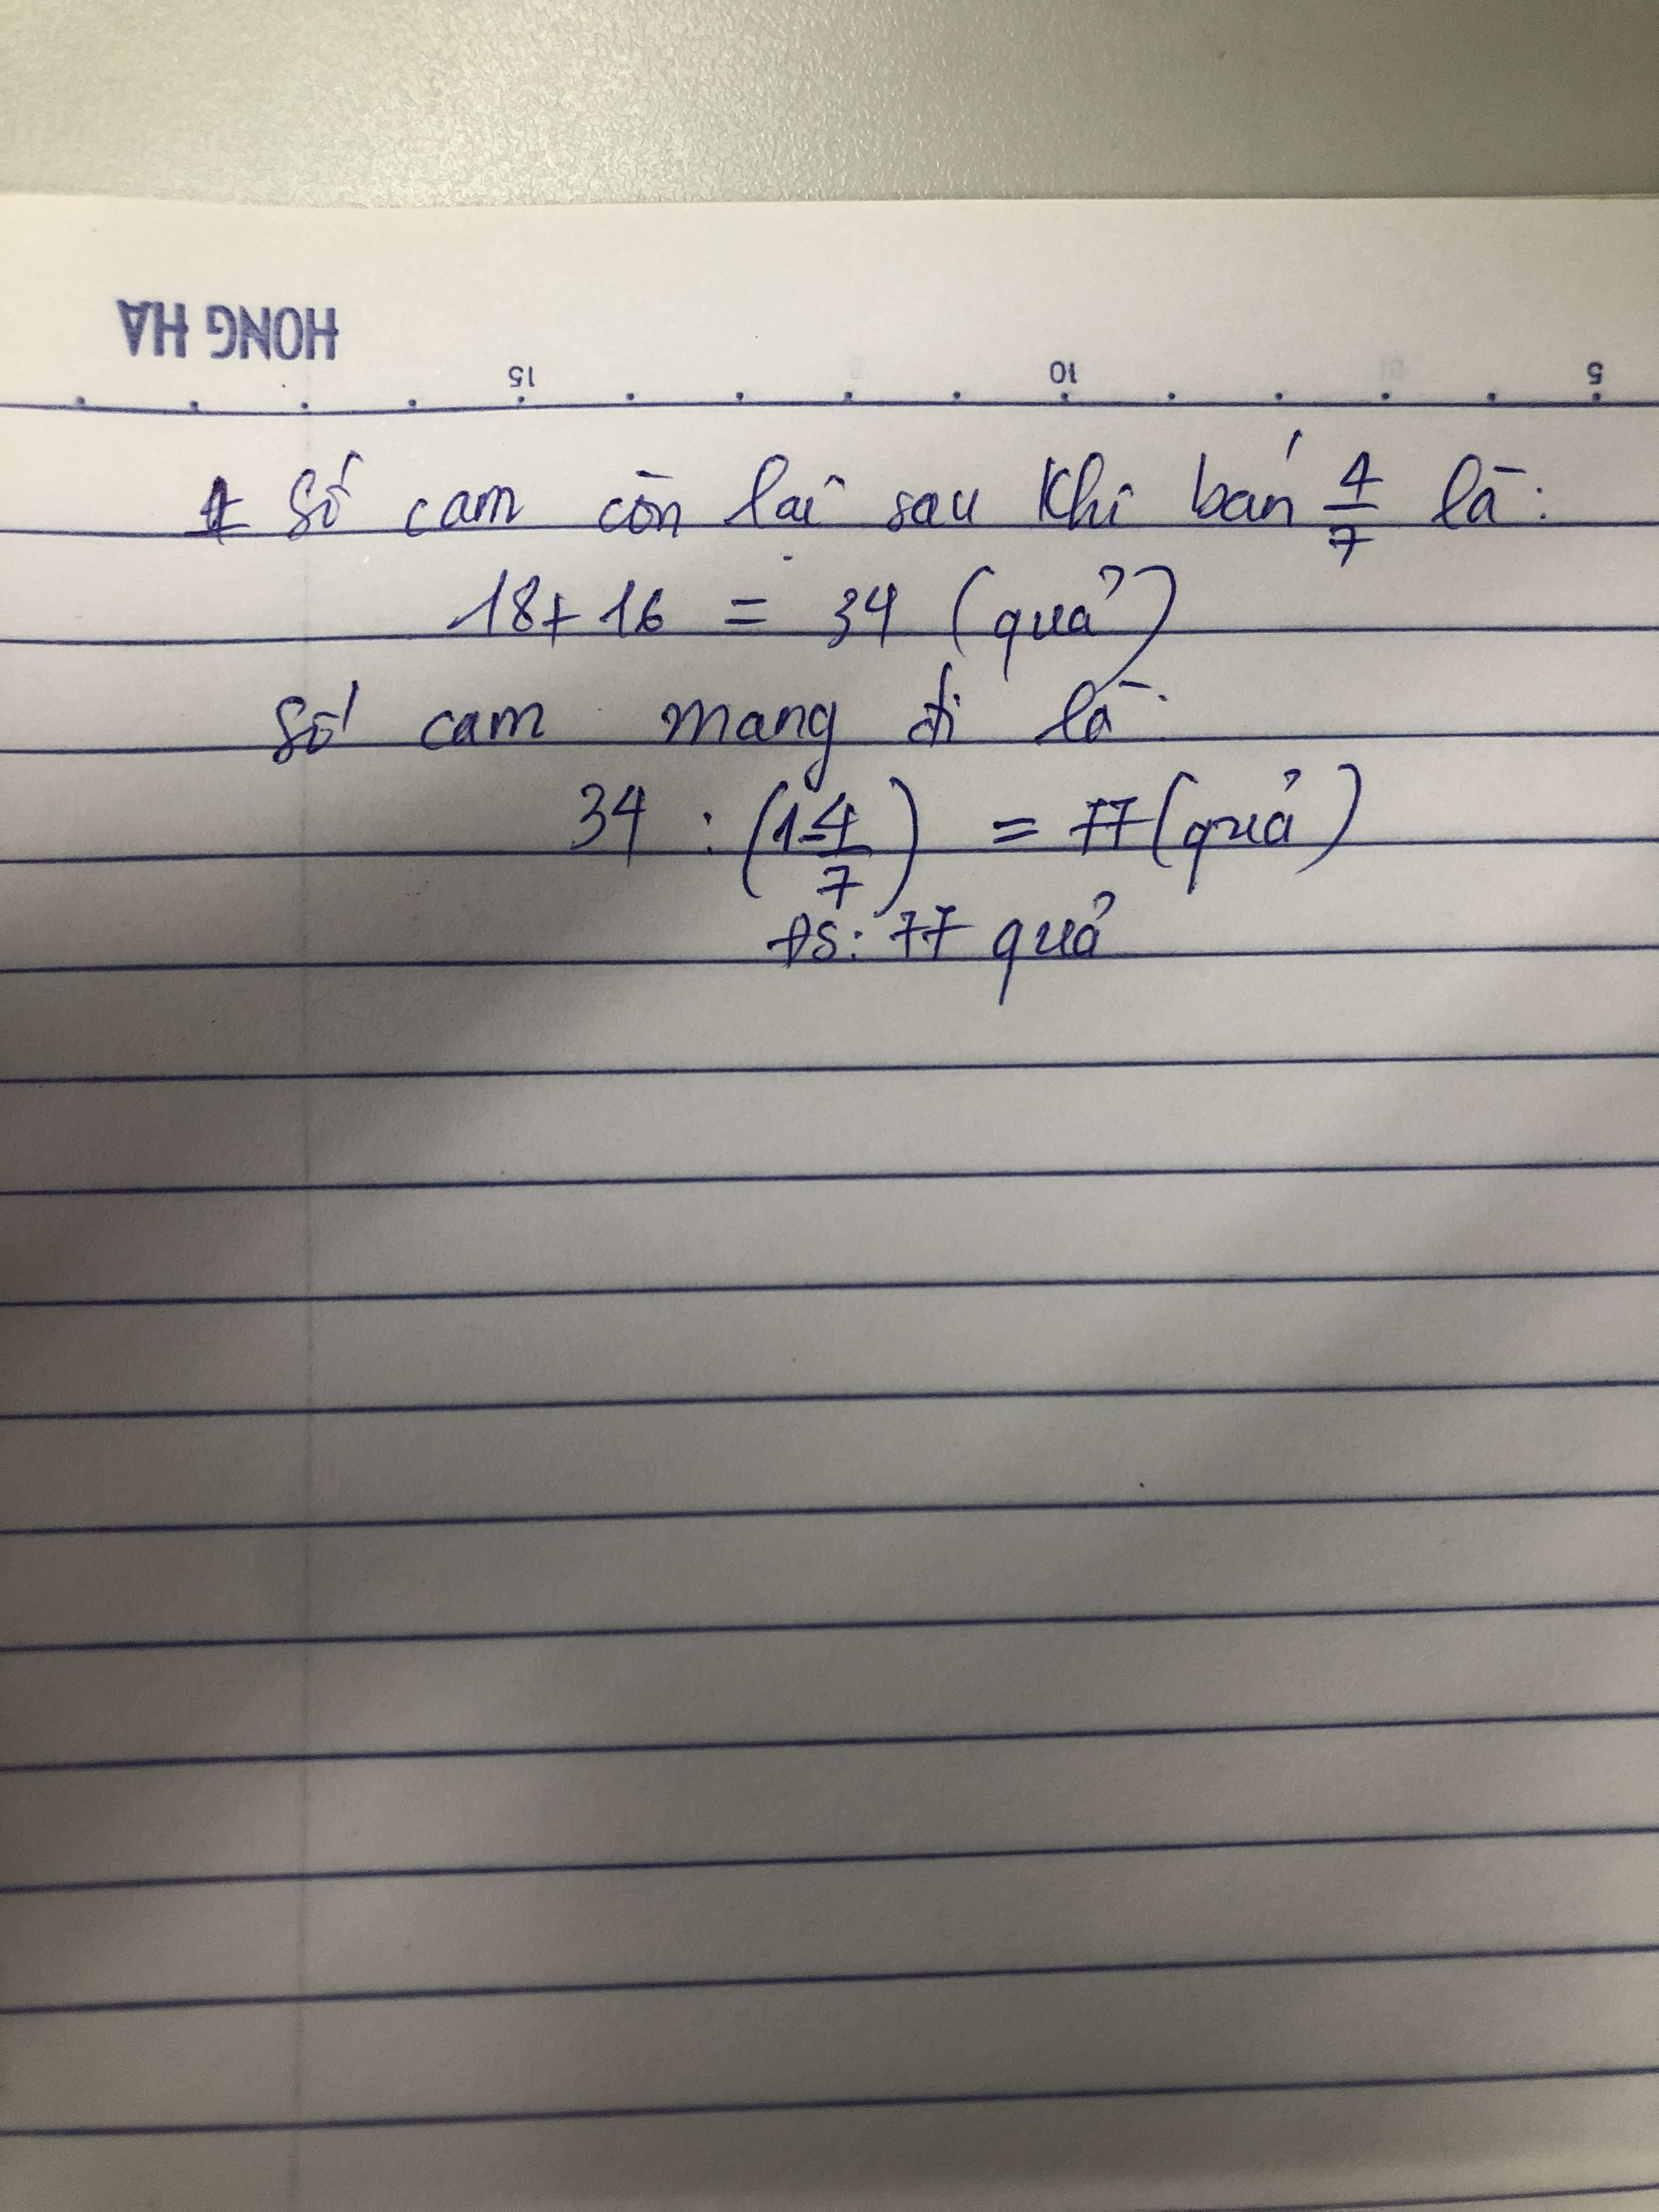 HONG HA
15 10 5
1 Số cam còn lại sau khi bán 4/7 là:
18+16 = 34 (quả)
Số cam mang đi là:
34 : (1-4/7) = 77 (quả)
ĐS: 77 quả